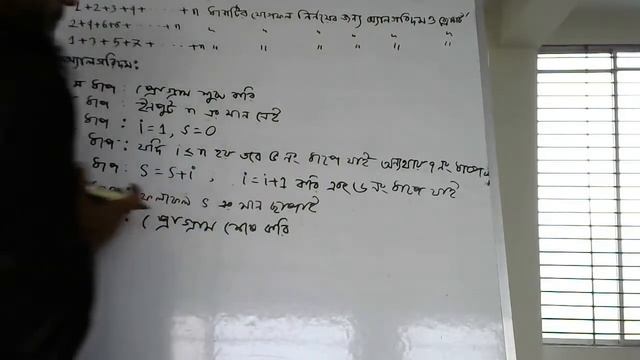 1+2+3+4+ ····· +n ধারাটির যোগফল নির্ণয়ের জন্য অ্যালগরিদম ও
2+4+6+8+ ····· +n " " " " " "
1+3+5+7+ ····· +n " " " " " "
অ্যালগরিদম:
ধাপ : প্রোগ্রাম শুরু করি
ধাপ : ইনপুট n এর মান নেই
ধাপ : i=1, s=0
ধাপ : যদি i≤n হয় তবে ৫ নং ধাপে যাই অন্যথায় ৭ নং ধাপে
ধাপ: s=s+i , i=i+1 করি এবং ৬ নং ধাপে যাই
ফলাফল s এর মান ছাপাই
: প্রোগ্রাম শেষ করি